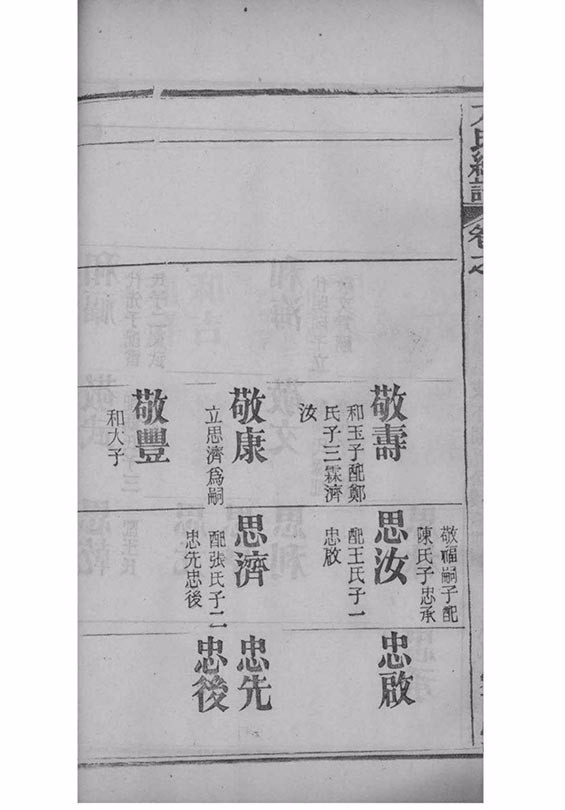 氏總譜 卷之
敬壽
和玉子配鄭
氏子三霖濟
汝
敬康
立思濟爲嗣
敬豐
和大子
敬福嗣子配
陳氏子忠承
思汝
配王氏子一
忠啟
思濟
配張氏子二
忠先忠後
忠啟
忠先
忠後